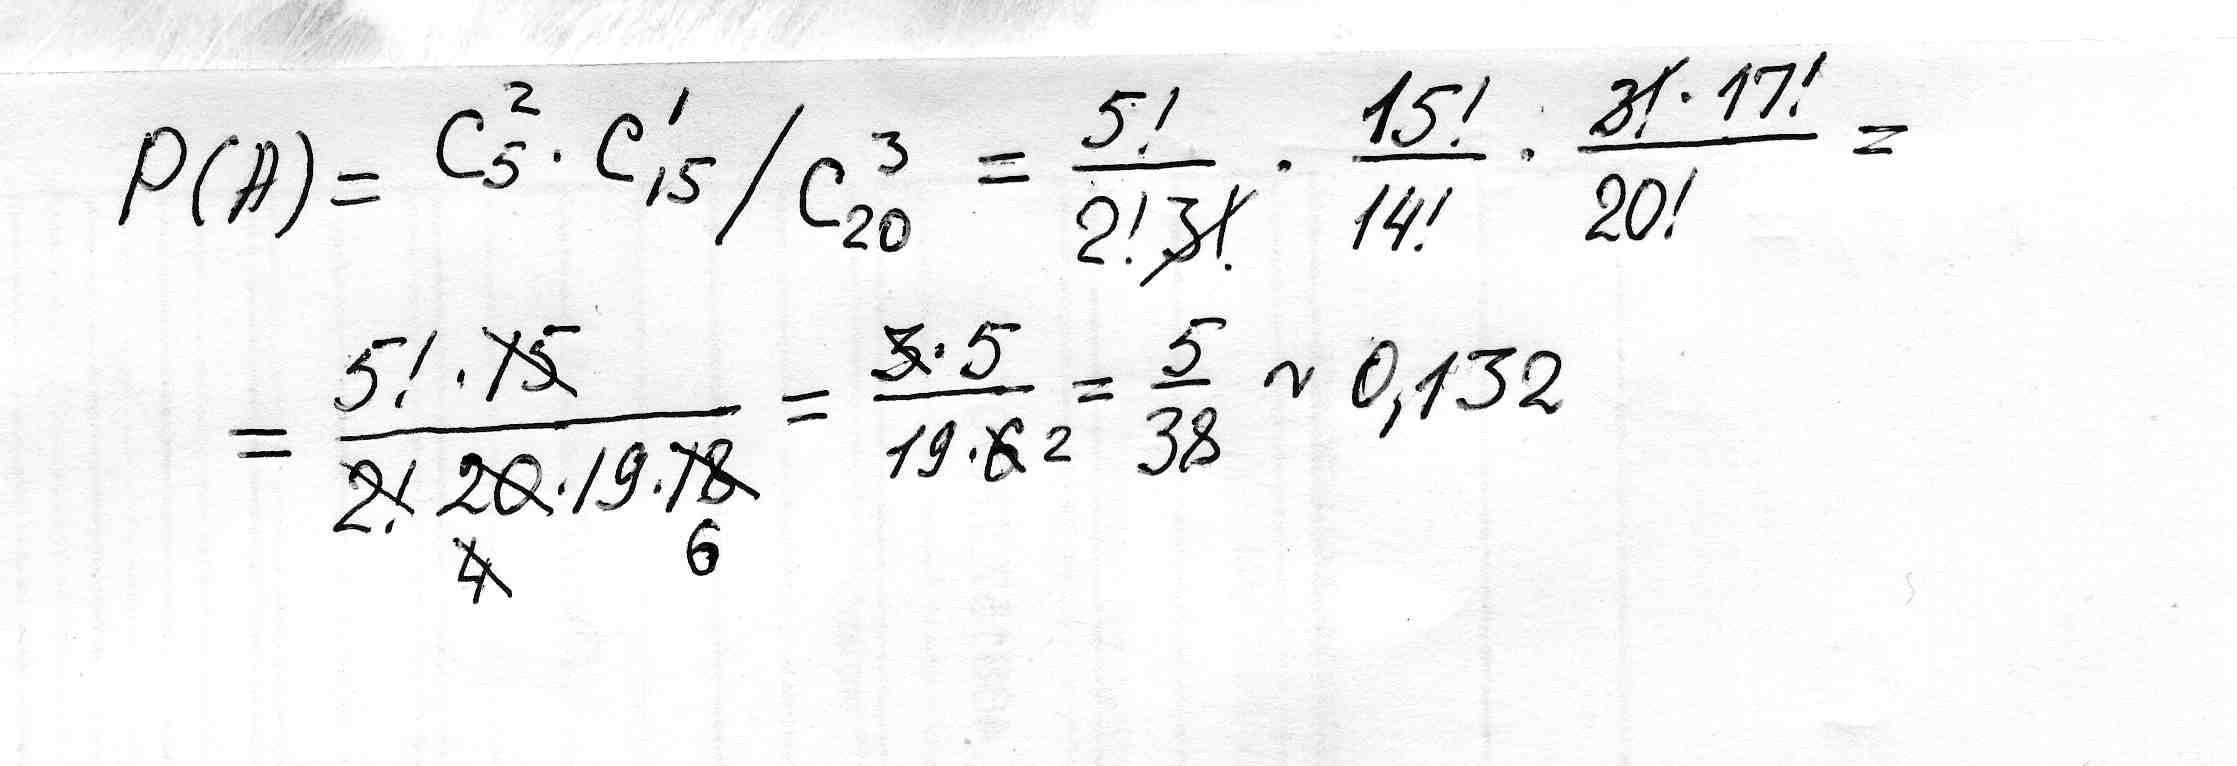 P(A) = C₅² · C₁₅¹ / C₂₀³ = 5!/(2!3!) · 15!/14! · (3! · 17!)/20! =
= (5! · 15)/(2! 20 · 19 · 18) = (3 · 5)/(19 · 6 2) = 5/38 ~ 0,132
4 6